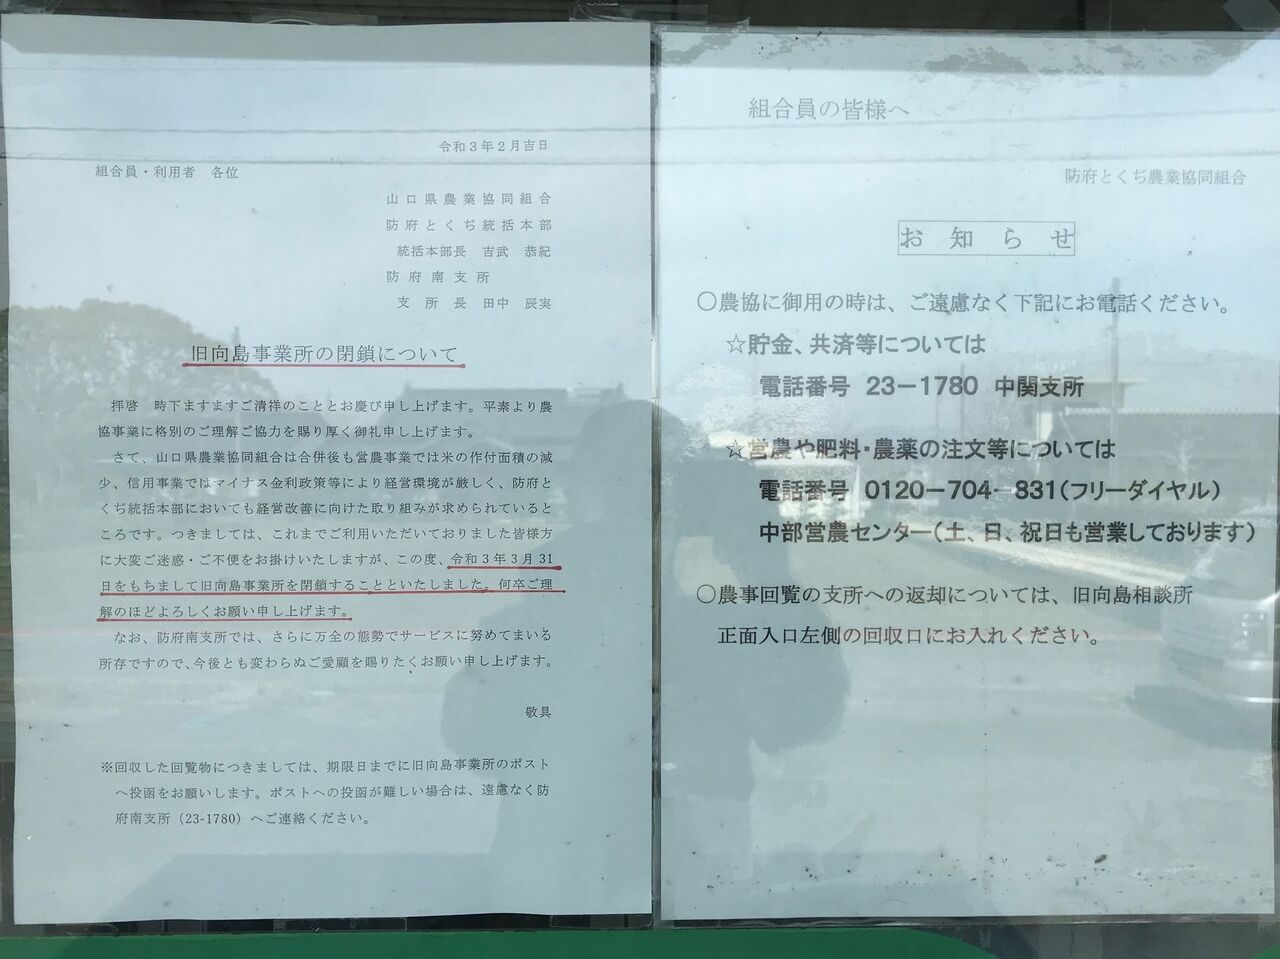 令和3年2月吉日
組合員・利用者　各位
山口県農業協同組合
防府とくぢ統括本部
統括本部長　吉武　恭紀
防府南支所
支所長　田中　辰実
旧向島事業所の閉鎖について
拝啓　時下ますますご清祥のこととお慶び申し上げます。平素より農
協事業に格別のご理解ご協力を賜り厚く御礼申し上げます。
さて、山口県農業協同組合は合併後も営農事業では米の作付面積の減
少、信用事業ではマイナス金利政策等により経営環境が厳しく、防府と
くぢ統括本部においても経営改善に向けた取り組みが求められていると
ころです。つきましては、これまでご利用いただいておりました皆様方
に大変ご迷惑・ご不便をお掛けいたしますが、この度、令和3年3月31
日をもちまして旧向島事業所を閉鎖することといたしました。何卒ご理
解のほどよろしくお願い申し上げます。
なお、防府南支所では、さらに万全の態勢でサービスに努めてまいる
所存ですので、今後とも変わらぬご愛顧を賜りたくお願い申し上げます。
敬具
※回収した回覧物につきましては、期限日までに旧向島事業所のポスト
へ投函をお願いします。ポストへの投函が難しい場合は、遠慮なく防
府南支所（23-1780）へご連絡ください。
組合員の皆様へ
防府とくぢ農業協同組合
お知らせ
○農協に御用の時は、ご遠慮なく下記にお電話ください。
☆貯金、共済等については
電話番号　23－1780　中関支所
☆営農や肥料・農薬の注文等については
電話番号　0120－704－831（フリーダイヤル）
中部営農センター（土、日、祝日も営業しております）
○農事回覧の支所への返却については、旧向島相談所
正面入口左側の回収口にお入れください。